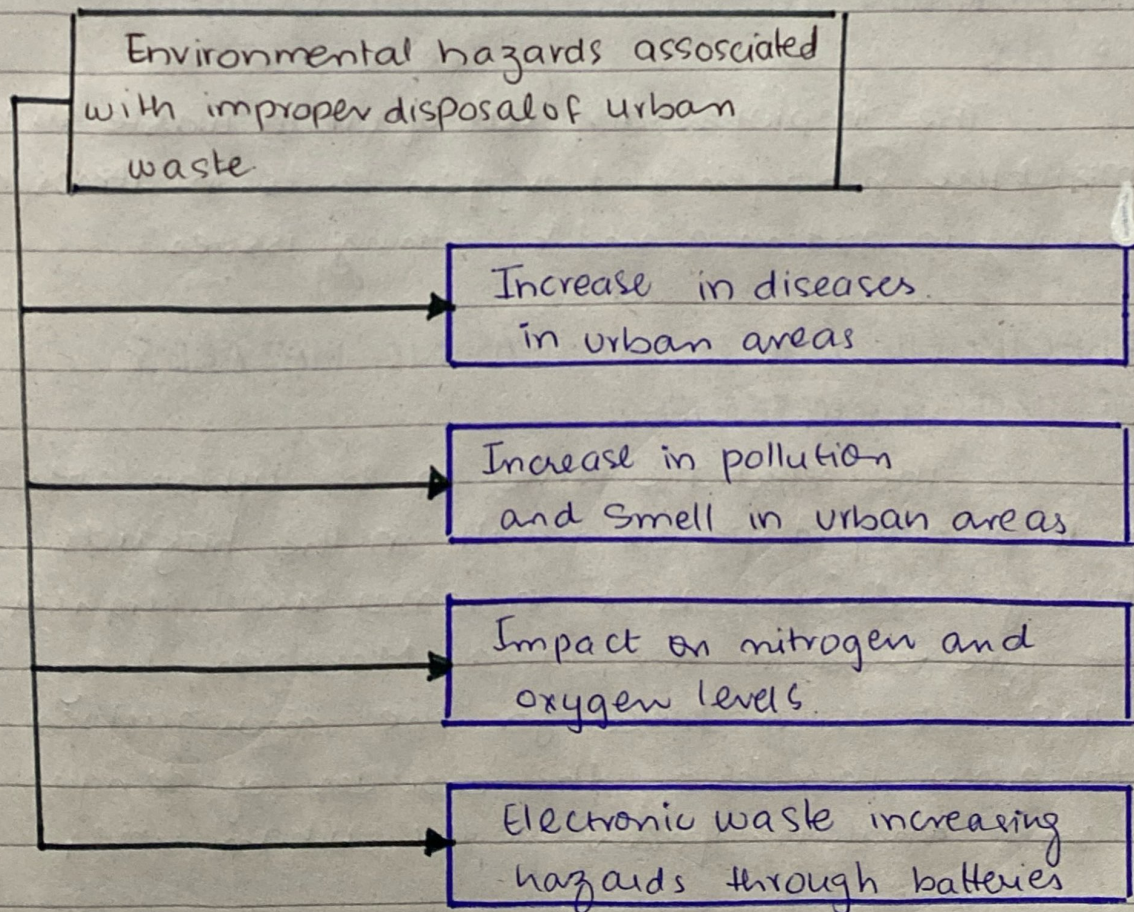 Environmental hazards assosciated
with improper disposal of urban
waste.
Increase in diseases.
in urban areas
Increase in pollution
and smell in urban areas
Impact on nitrogen and
oxygen levels.
Electronic waste increasing
hazards through batteries